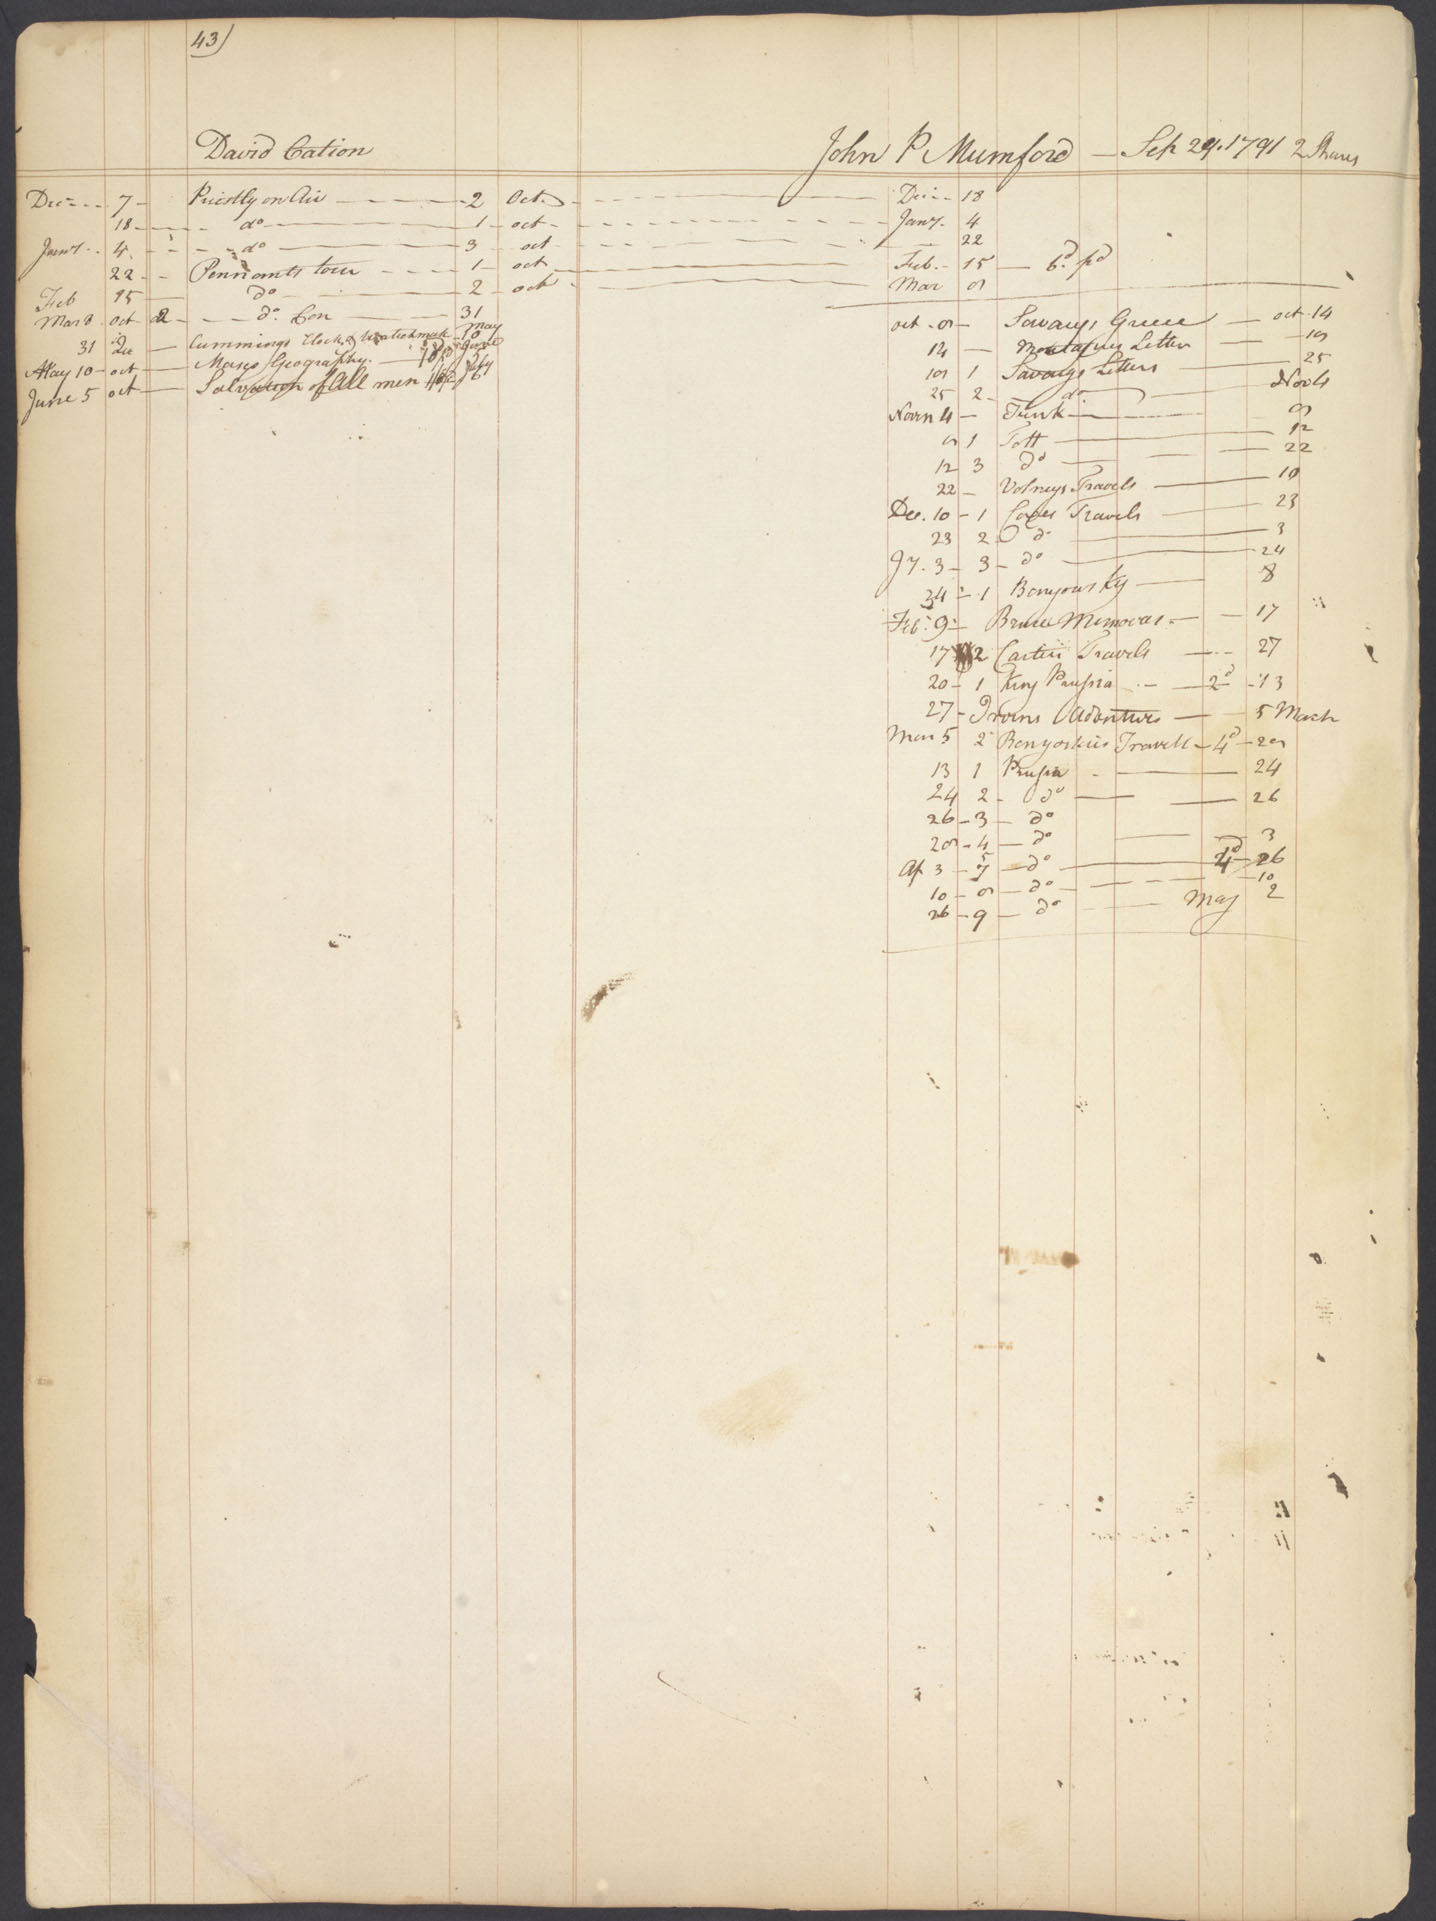 43)
David Cation
Decr 7 Priestly on Air 2 Oct. Decr 18
18 do 1 oct Jany. 4
Jany 4 do 3 oct 22
22 Pennants tour 1 oct Feb. 15 6d. pd
Feb 15 do 2 oct Mar 8
Mar 8 oct 2 do. Con 31
31 Cummings Clock & Watchmak May 10
May 10 oct Morses Geography June 5
June 5 oct Salvation of All men July
John P Mumford — Sep 29. 1791 2 Shares
oct. 8 Savarys Greece oct 14
14 Montagues Letter 18
18 1 Savarys Letters 25
25 2 do Nov 4
Novn 4 Funk 8
8 1 Tott 12
12 3 do 22
22 Volneys Travels 10
Dec. 10 1 Coxes Travels 23
23 2 do 3
Jy. 3 3 do 24
24 1 Benyousky 8
Feb. 9 Bruce Memooas 17
17 2 Carters Travels 27
20 1 King Prussia 2d 13
27 Irvins Adventures 5 March
Mar 5 2 Benyoskies Travels 4d 28
13 1 Prussia 24
24 2 do 26
26 3 do
28 4 do 3
Ap 3 do 4d 26
10 8 do 10
26 9 do May 2